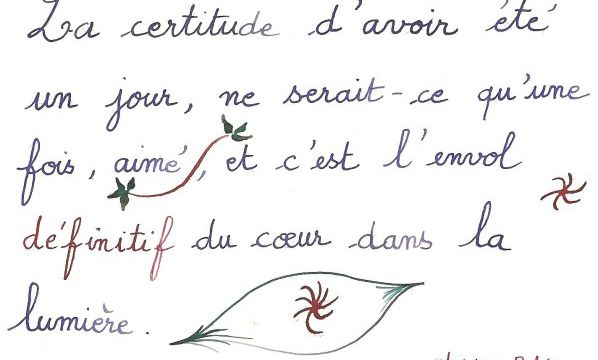 La certitude d'avoir été
un jour, ne serait-ce qu'une
fois, aimé, et c'est l'envol
définitif du cœur dans la
lumière.